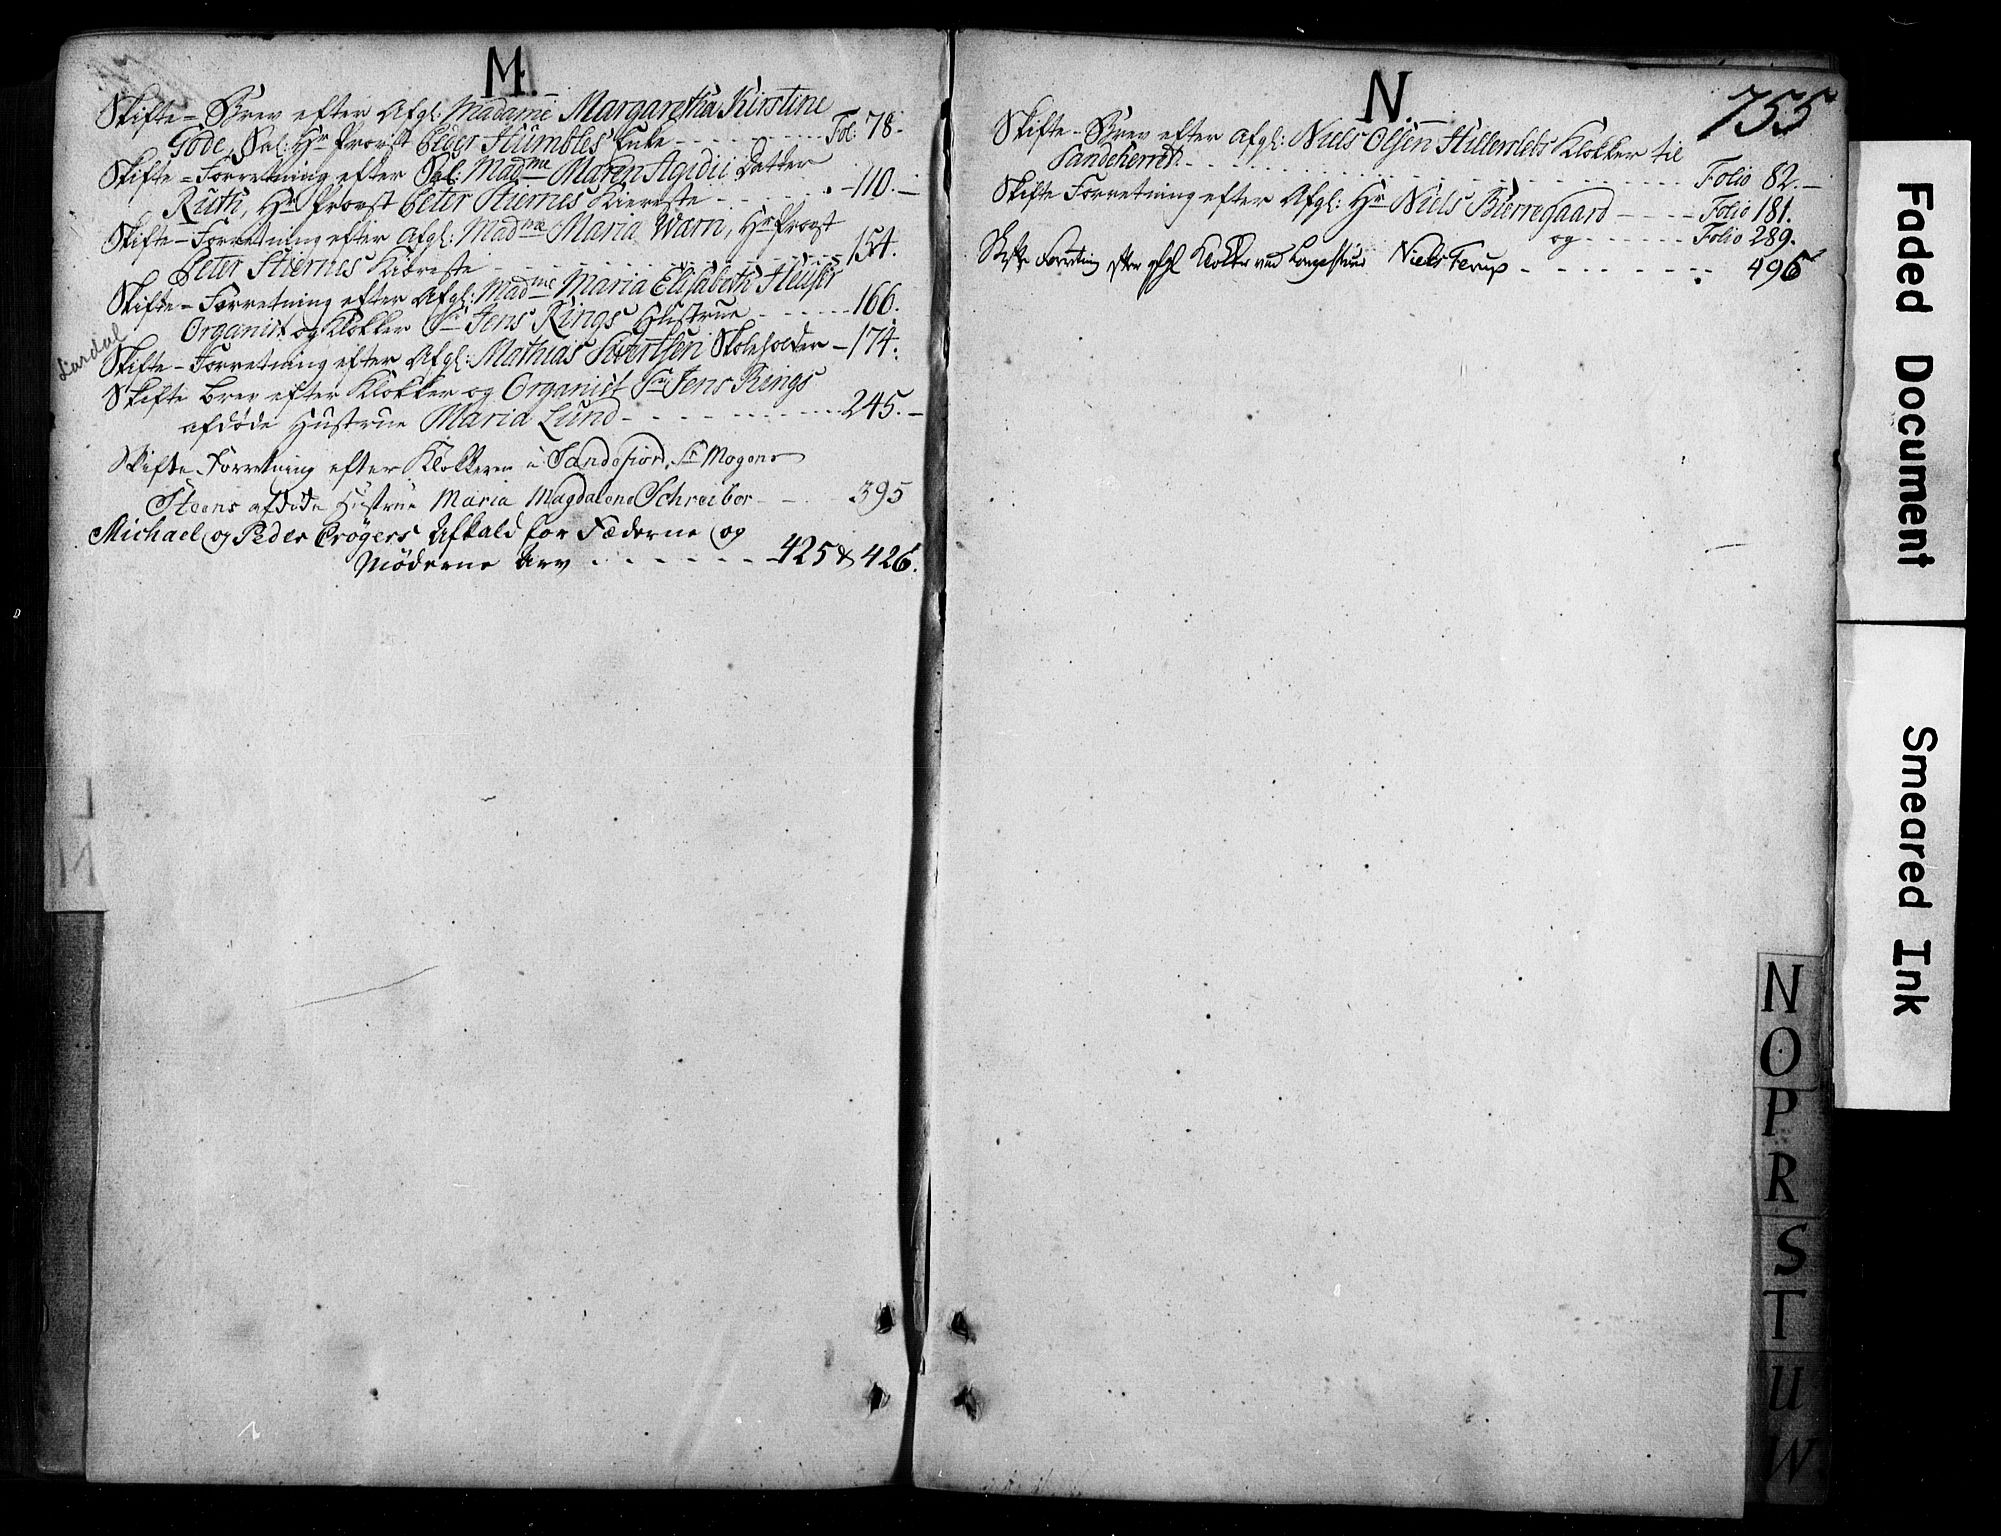 M.
Skifte-Brev efter Afgl: Madame Margaretha Kirstine
Gode, Sal: Hr Provst Peder Humbles Enke - - - Fol: 78.
Skifte-Forretning efter Sal: Madme Maren Agidii Datter
Ruth, Hr Provst Peter Stiernes Kiereste - - - 110.
Skifte-Forretning efter Afgl: Madme Maria Warn, Hr Provst
Peter Stiernes Kiereste - - - 154.
Skifte-Forretning efter Afgl: Madme Maria Elisabeth Heuser
Organist og Klokker Sr Jens Rings Hustrue - - - 166.
Lardal
Skifte-Forretning efter Afgl: Mathias Sivertsen Skoleholder - 174.
Skifte Brev efter Klokker og Organist Sr Jens Rings
afdøde Hustrue Maria Lund - - - 245.
Skifte Forretning efter Klokkeren i Sandefiord, Sr Mogens
Steens afdøde Hustrue Maria Magdalena Schreiber - - 395
Michael og Peder Crøgers Afkald for Fæderne og
Møderne Arv - - - 425 & 426.
L
M
N.
755
Skifte-Brev efter Afgl: Niels Olsen Hillerslebs Klokker til
Sandeherrit - - - Folio 82.
Skifte Forretning efter Afgl: Hr Niels Bierregaard - - - Folio 181.
og - - - Folio 289.
Skifte Forretning efter afgl Klokker ved Langestrand Niels Terup - - - 496
N
O
P
R
S
T
U
W.
Faded Document
Smeared Ink